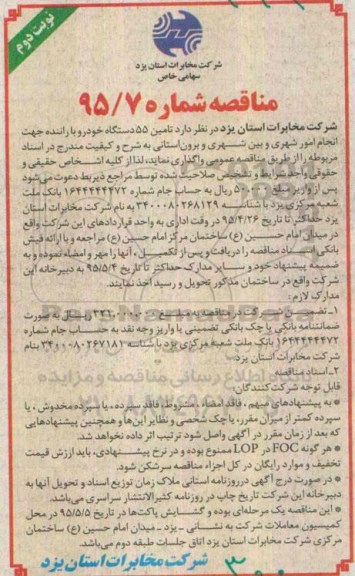 نوبت دوم
شرکت مخابرات استان یزد
سهامی خاص
مناقصه شماره ۹۵/۷
شرکت مخابرات استان یزد در نظر دارد تامین ۵۵ دستگاه خودرو با راننده جهت
انجام امور شهری و بین شهری و برون‌استانی به شرح و کیفیت مندرج در اسناد
مربوطه را از طریق مناقصه عمومی واگذاری نماید، لذا از کلیه اشخاص حقیقی و
حقوقی واجد شرایط و تشخیص صلاحیت شده توسط مراجع ذیربط دعوت می‌شود
پس از واریز مبلغ ۵۰۰,۰۰۰ ریال به حساب جام شماره ۱۶۴۴۴۴۴۴۷۲ بانک ملت
شعبه مرکزی یزد با شناسه ۳۴۰۰۰۸۰۲۶۸۱۲۹ به نام شرکت مخابرات استان
یزد حداکثر تا تاریخ ۹۵/۴/۲۶ در وقت اداری به واحد قراردادهای این شرکت واقع
در میدان امام حسین (ع) ساختمان مرکز امام حسین (ع) مراجعه و با ارائه فیش
بانکی اسناد مناقصه را دریافت و پس از تکمیل، آنها را مهر و امضاء نموده و به
ضمیمه پیشنهاد خود و سایر مدارک حداکثر تا تاریخ ۹۵/۵/۴ به دبیرخانه این
شرکت واقع در ساختمان مذکور تحویل و رسید اخذ نمایند.
مدارک لازم:
۱- تضمین شرکت در مناقصه به مبلغ ریال به صورت
ضمانتنامه بانکی یا چک بانکی تضمینی یا واریز وجه نقد به حساب جام شماره
۱۶۴۴۴۴۴۴۷۲ بانک ملت شعبه مرکزی یزد با شناسه ۳۴۰۰۰۸۰۲۶۷۱۸۱ بنام
شرکت مخابرات استان یزد
۲- اسناد مناقصه
قابل توجه شرکت‌کنندگان:
* به پیشنهادهای مبهم، فاقد امضاء، مشروط، فاقد سپرده، یا سپرده مخدوش، یا
سپرده کمتر از میزان مقرر، یا چک شخصی و نظایر این‌ها و همچنین پیشنهادهایی
که بعد از زمان مقرر در آگهی واصل شود ترتیب اثر داده نخواهد شد.
* هر گونه FOC در LOP ممنوع بوده و در نرخ پیشنهادی، باید ارزش قیمت
تخفیف و موارد رایگان در کل اجزاء مناقصه سرشکن شود.
* در صورت درج آگهی در روزنامه استانی ملاک زمان توزیع اسناد و تحویل آنها به
دبیرخانه این شرکت تاریخ چاپ در روزنامه کثیرالانتشار سراسری می‌باشد.
* این مناقصه یک مرحله‌ای بوده و گشایش پاکت‌ها در تاریخ ۹۵/۵/۵ در محل
کمیسیون معاملات شرکت به نشانی ـ یزد ـ میدان امام حسین (ع) ساختمان
مرکزی شرکت مخابرات یزد اتاق جلسات طبقه دوم می‌باشد.
شرکت مخابرات استان یزد